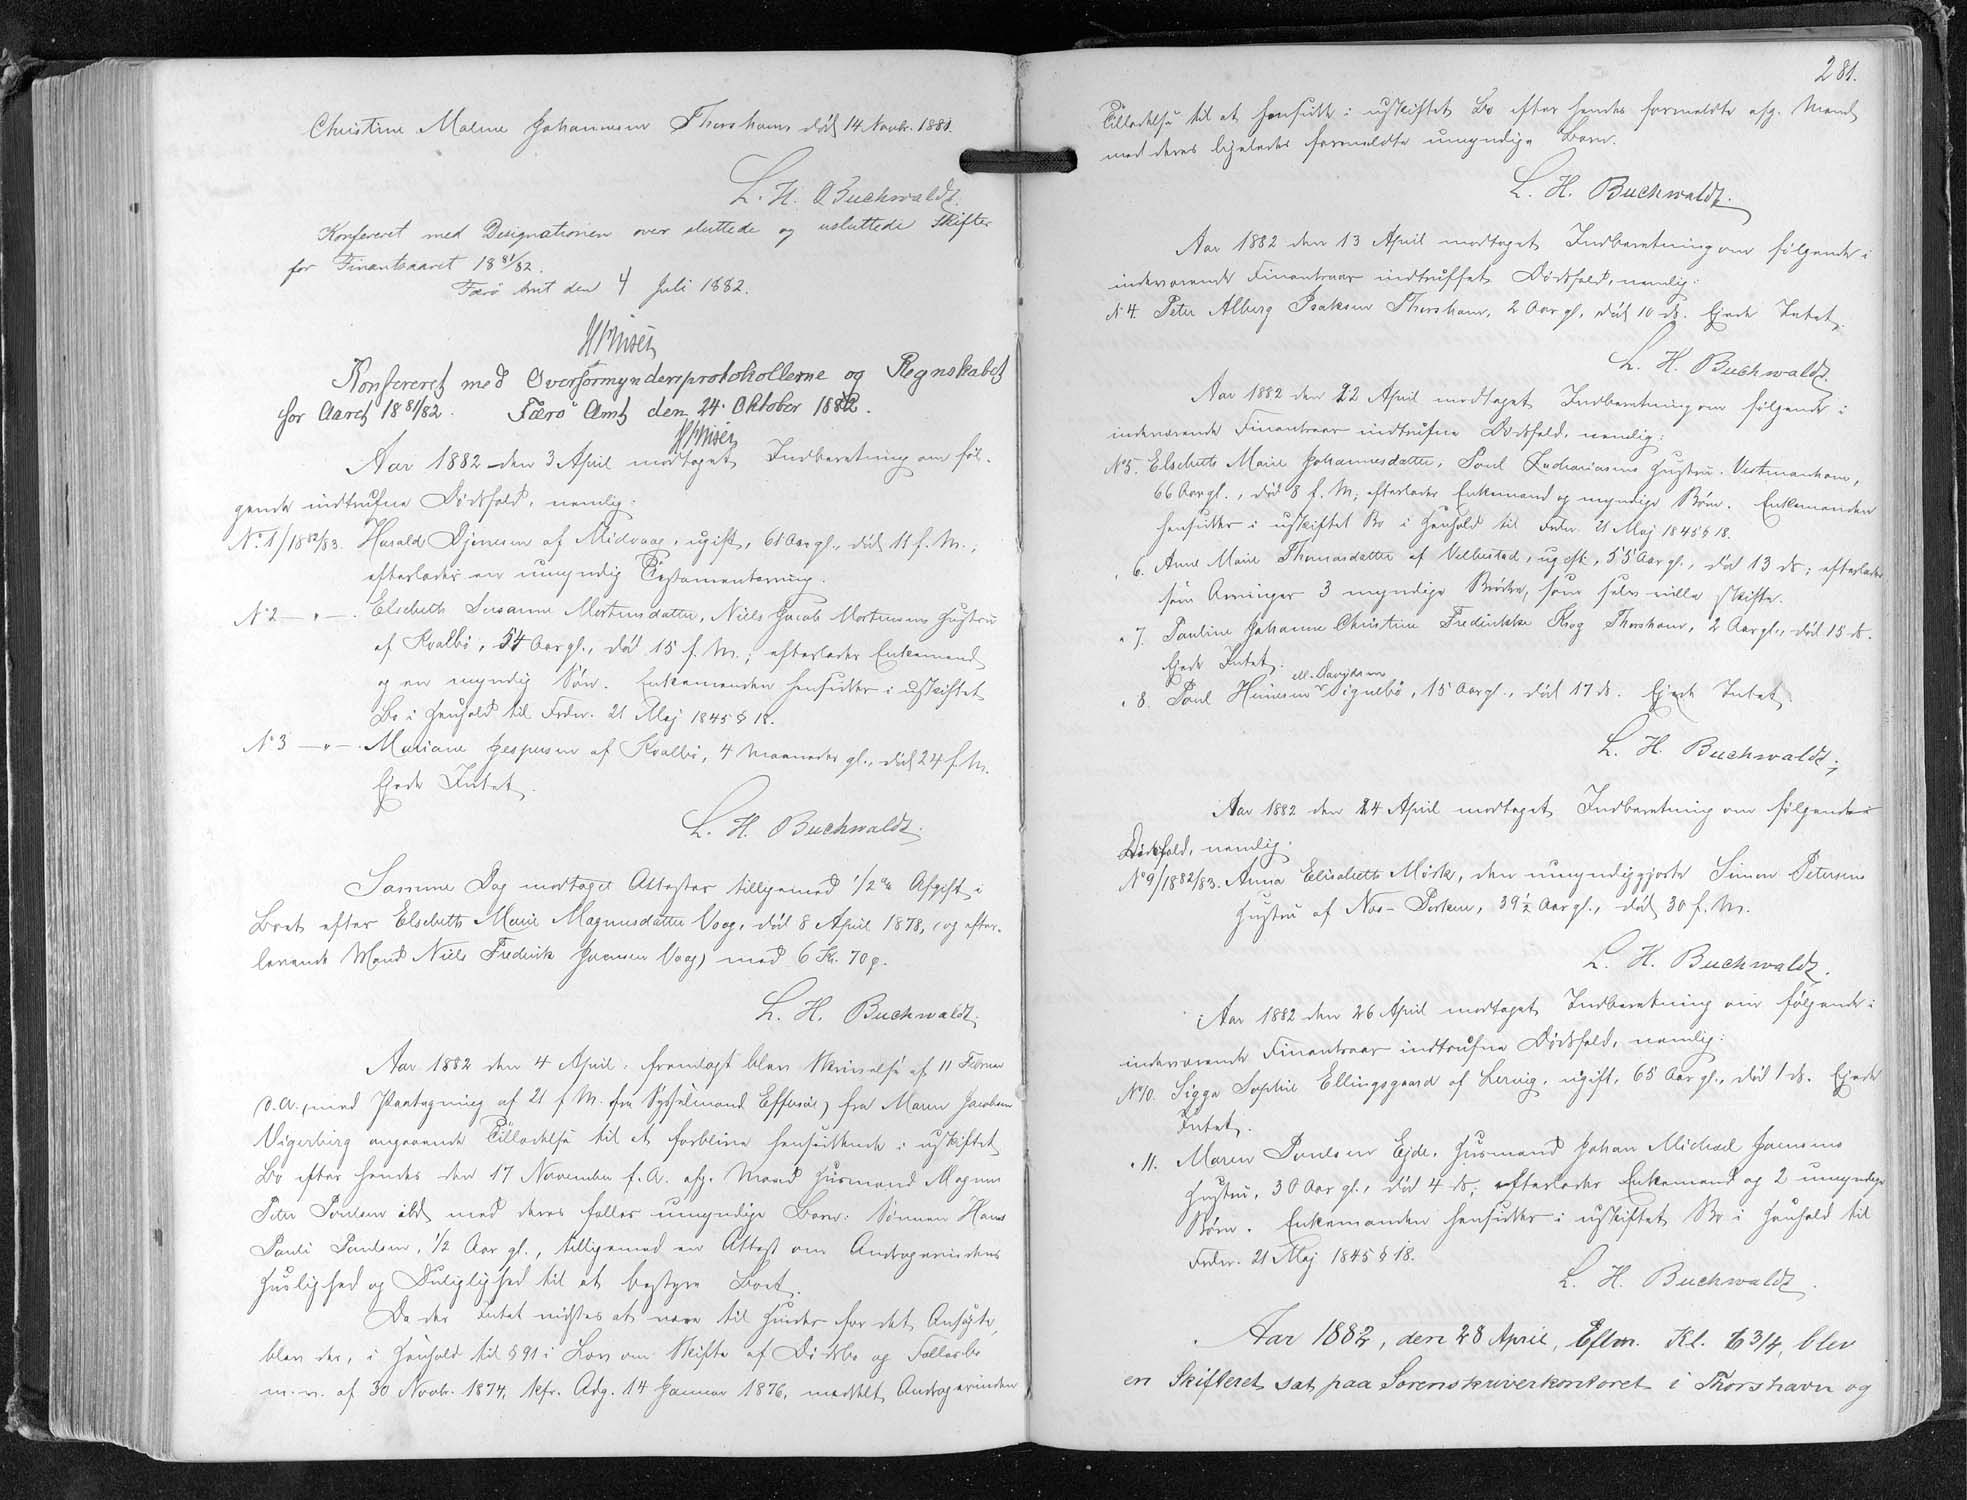 Christine Malene Johannesen Thorshavn død 14 Novbr. 1881.
L. H. Buchwaldt.
Konfereret med Designationen over sluttede og usluttede Skifter
for Finantsaaret 18 81/82.
Færø Amt den 4 Juli 1882.
Konfereret med Overformynderprotokollerne og Regnskabet
for Aaret 18 81/82. Færø Amt den 24. Oktober 1882.
Aar 1882 den 3 April modtaget Indberetning om føl-
gende indtrufne Dødsfald, nemlig:
No. 1/18 82/83. Harald Djonesen af Midvaag, ugift, 61 Aar gl., død 11 f. M.;
efterlader en umyndig Testamentarving.
No 2 — " —. Elsebeth Susanne Mortensdatter, Niels Jacob Mortensens Hustru
af Kvalbø, 54 Aar gl., død 15 f. M.; efterlader Enkemand
og en myndig Søn. Enkemanden hensidder i uskiftet
Bo i Henhold til Frdn. 21 Maj 1845 § 18.
No 3 — " —. Mariane Jespersen af Kvalbø, 4 Maaneder gl., død 24 f. M.
Ejede Intet.
L. H. Buchwaldt.
Samme Dag modtaget Attester tilligemed 1/2 % Afgift i
Boet efter Elsebeth Marie Magnusdatter Vaag, død 8 April 1878, (og efter-
levende Mand Niels Frederik Joensen Vaag) med 6 Kr. 70 ø.
L. H. Buchwaldt.
Aar 1882 den 4 April, fremlagt blev Skrivelse af 11 Februar
d. A. (med Paategning af 21 f. M. fra Sysselmand Effersøe) fra Maren Jacobsen
Vigerbirg angaaende Tilladelse til at forblive hensiddende i uskiftet
Bo efter hendes den 17 November f. A. afg. Mand Husmand Magnus
Peter Poulsen ibd. med deres fælles umyndige Barn: Sønnen Hans
Pauli Poulsen, 1/2 Aar gl., tilligemed en Attest om Andragerindens
Huslighed og Duelighed til at bestyre Boet.
Da der Intet vidstes at være til Hinder for det Ansøgte,
blev der, i Henhold til § 91 i Lov om Skifte af Dødsbo og Fællesbo
m. v. af 30 Novbr. 1874, kfr. Adg. 14 Januar 1876, meddelt Andragerinden
281.
Tilladelse til at hensidde i uskiftet Bo efter hendes formeldte afg. Mand
med deres ligeledes formeldte umyndige Barn.
L. H. Buchwaldt.
Aar 1882 den 13 April modtaget Indberetning om følgende i
indeværende Finantsaar indtruffet Dødsfald, nemlig:
No 4. Peter Alberg Isaksen Thorshavn, 2 Aar gl., død 10 ds. Ejede Intet.
L. H. Buchwaldt.
Aar 1882 den 22 April modtaget Indberetning om følgende i
indeværende Finantsaar indtrufne Dødsfald, nemlig:
No 5. Elsebeth Marie Johannesdatter, Poul Zachariasens Hustru Vestmanhavn,
66 Aar gl., død 8 f. M.; efterlader Enkemand og myndige Børn. Enkemanden
hensidder i uskiftet Bo i Henhold til Frdn. 21 Maj 1845 § 18.
" 6. Anne Marie Thomasdatter af Velbestad, ugift, 55 Aar gl., død 13 ds; efterlader
som Arvinger 3 myndige Brødre, som selv ville skifte.
" 7. Pauline Johanne Christine Fredrikke Krog Thorshavn, 2 Aar gl., død 15 ds.
Ejede Intet.
ell. Davidsen
" 8. Poul Heinesen Signebø, 15 Aar gl., død 17 ds. Ejede Intet.
L. H. Buchwaldt.
Aar 1882 den 24 April modtaget Indberetning om følgende
Dødsfald, nemlig:
No 9/18 82/83. Anna Elisabeth Mørk, den umyndiggjorte Simon Petersens
Hustru af Næs-Porkere, 39 1/2 Aar gl., død 30 f. M.
L. H. Buchwaldt.
Aar 1882 den 26 April modtaget Indberetning om følgende i
indeværende Finantsaar indtrufne Dødsfald, nemlig:
No 10. Sigga Sophie Ellingsgaard af Lervig, ugift, 65 Aar gl., død 1 ds. Ejede
Intet.
" 11. Maren Poulsen Ejde, Husmand Johan Michael Joensens
Hustru, 30 Aar gl., død 4 ds; efterlader Enkemand og 2 umyndige
Børn. Enkemanden hensidder i uskiftet Bo i Henhold til
Frdn. 21 Maj 1845 § 18.
L. H. Buchwaldt.
Aar 1882, den 28 April, Eftm. Kl. 6 3/4, blev
en Skifteret sat paa Sorenskriverkontoret i Thorshavn og